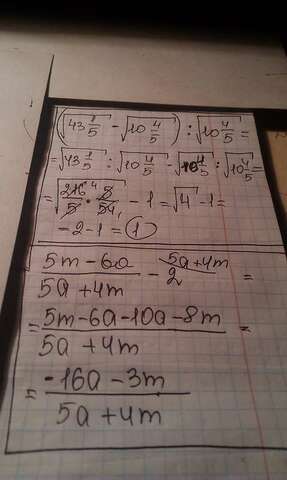 (√43 1/5 - √10 4/5) : √10 4/5 =
= √43 1/5 : √10 4/5 - √10 4/5 : √10 4/5 =
= √216/5 · 5/54 - 1 = √4 - 1 =
= 2 - 1 = 1
(5m - 6a)/(5a + 4m) - (5a + 4m)/2 =
= (5m - 6a - 10a - 8m)/(5a + 4m) =
= (-16a - 3m)/(5a + 4m)